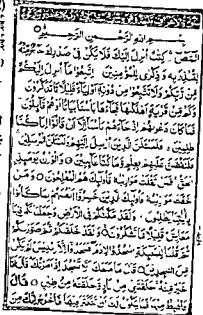 بسم الله الرحمن الرحيم
المص كتب انزل اليك فلا يكن في صدرك حرج منه
لتنذر به وذكرى للمؤمنين اتبعوا ما انزل اليكم
من ربكم ولا تتبعوا من دونه اولياء قليلا ما تذكرون
وكم من قرية اهلكنها فجاءها باسنا بياتا او هم قائلون
فما كان دعويهم اذ جاءهم باسنا الا ان قالوا انا كنا
ظلمين فلنسئلن الذين ارسل اليهم ولنسئلن المرسلين
فلنقصن عليهم بعلم وما كنا غائبين والوزن يومئذ
الحق فمن ثقلت موازينه فاولئك هم المفلحون ومن
خفت موازينه فاولئك الذين خسروا انفسهم بما كانوا
بايتنا يظلمون ولقد مكنكم في الارض وجعلنا لكم فيها
معايش قليلا ما تشكرون ولقد خلقنكم ثم صورنكم
ثم قلنا للملئكة اسجدوا لادم فسجدوا الا ابليس لم يكن
من السجدين قال ما منعك الا تسجد اذ امرتك قال انا
خير منه خلقتني من نار وخلقته من طين قال
فاهبط منها فما يكون لك ان تتكبر فيها فاخرج انك من